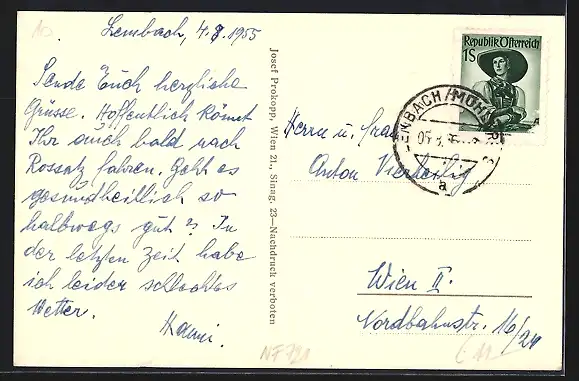 Lembach, 4.8.1955
Sende Euch herzliche
Grüsse. Hoffentlich könnt
Ihr auch bald nach
Rossatz fahren. Geht es
gesundheitlich so
halbwegs gut? In
der letzten Zeit habe
ich leider schlechtes
Wetter.
Josef Prokopp, Wien 21., Sinag. 23—Nachdruck verboten
Republik Österreich
1S
LEMBACH/MÜHL
a
Herrn u. Frau
Anton
Wien II.
Nordbahnstr. 16/24
NF 791